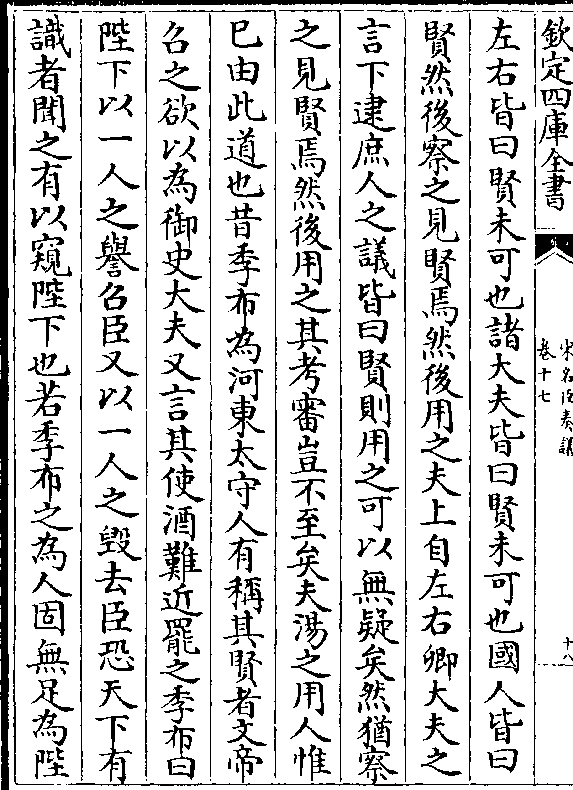 欽定四庫全書
宋名臣奏議
卷十七
十八
左右皆曰賢未可也諸大夫皆曰賢未可也國人皆曰
賢然後察之見賢焉然後用之夫上自左右卿大夫之
言下逮庶人之議皆曰賢則用之可以無疑矣然猶察
之見賢焉然後用之其考審豈不至矣夫湯之用人惟
已由此道也昔季布為河東太守人有稱其賢者文帝
召之欲以為御史大夫又言其使酒難近罷之季布曰
陛下以一人之譽召臣又以一人之毁去臣恐天下有
識者聞之有以窺陛下也若季布之為人固無足為陛